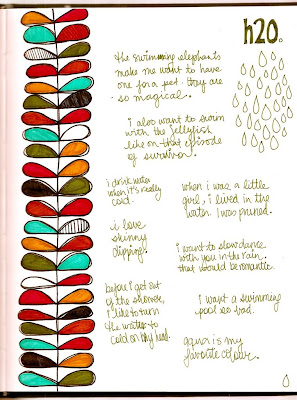 h20.
the swimming elephants
make me want to have
one for a pet. they are
so magical.
i also want to swim
with the jellyfish
like on that episode
of survivor.
i drink water
when it's really
cold.
when i was a little
girl, i lived in the
water. i was pruned.
i love
skinny
dipping.
i want to slow dance
with you in the rain.
that would be romantic.
before i get out
of the shower,
i like to turn
the water to
cold on my head.
i want a swimming
pool so bad.
aqua is my
favorite colour.